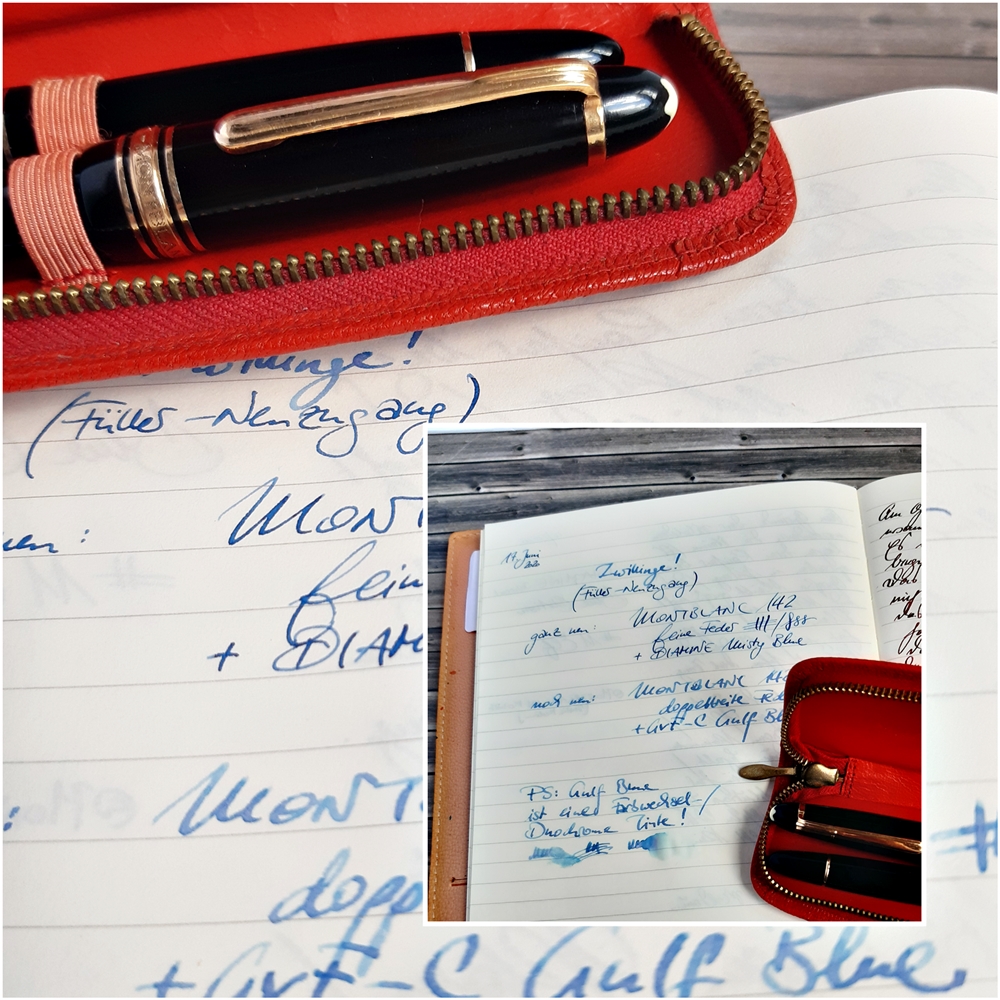 willinge!
(Füller-Neuzugang)
neu: MONT
fein
+ DIAM
: MONT
dopp
+ GvF-C Gulf Blue
17. Juni
Zwillinge!
(Füller-Neuzugang)
ganz neu: MONTBLANC 142
feine Feder
+ DIAMINE Misty Blue
noch neu: MONTBLANC
doppelbreite Fed
+ GvF-C Gulf Bl
PS: Gulf Blue
ist eine Farbwechsel-/
Duochrome Tinte!
Am